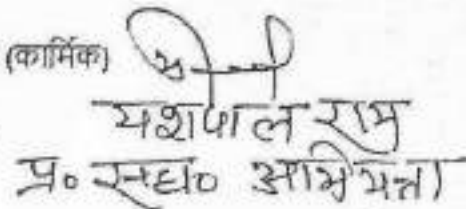 (कार्मिक)
यशपाल राम
प्र० सहा० अभियन्ता